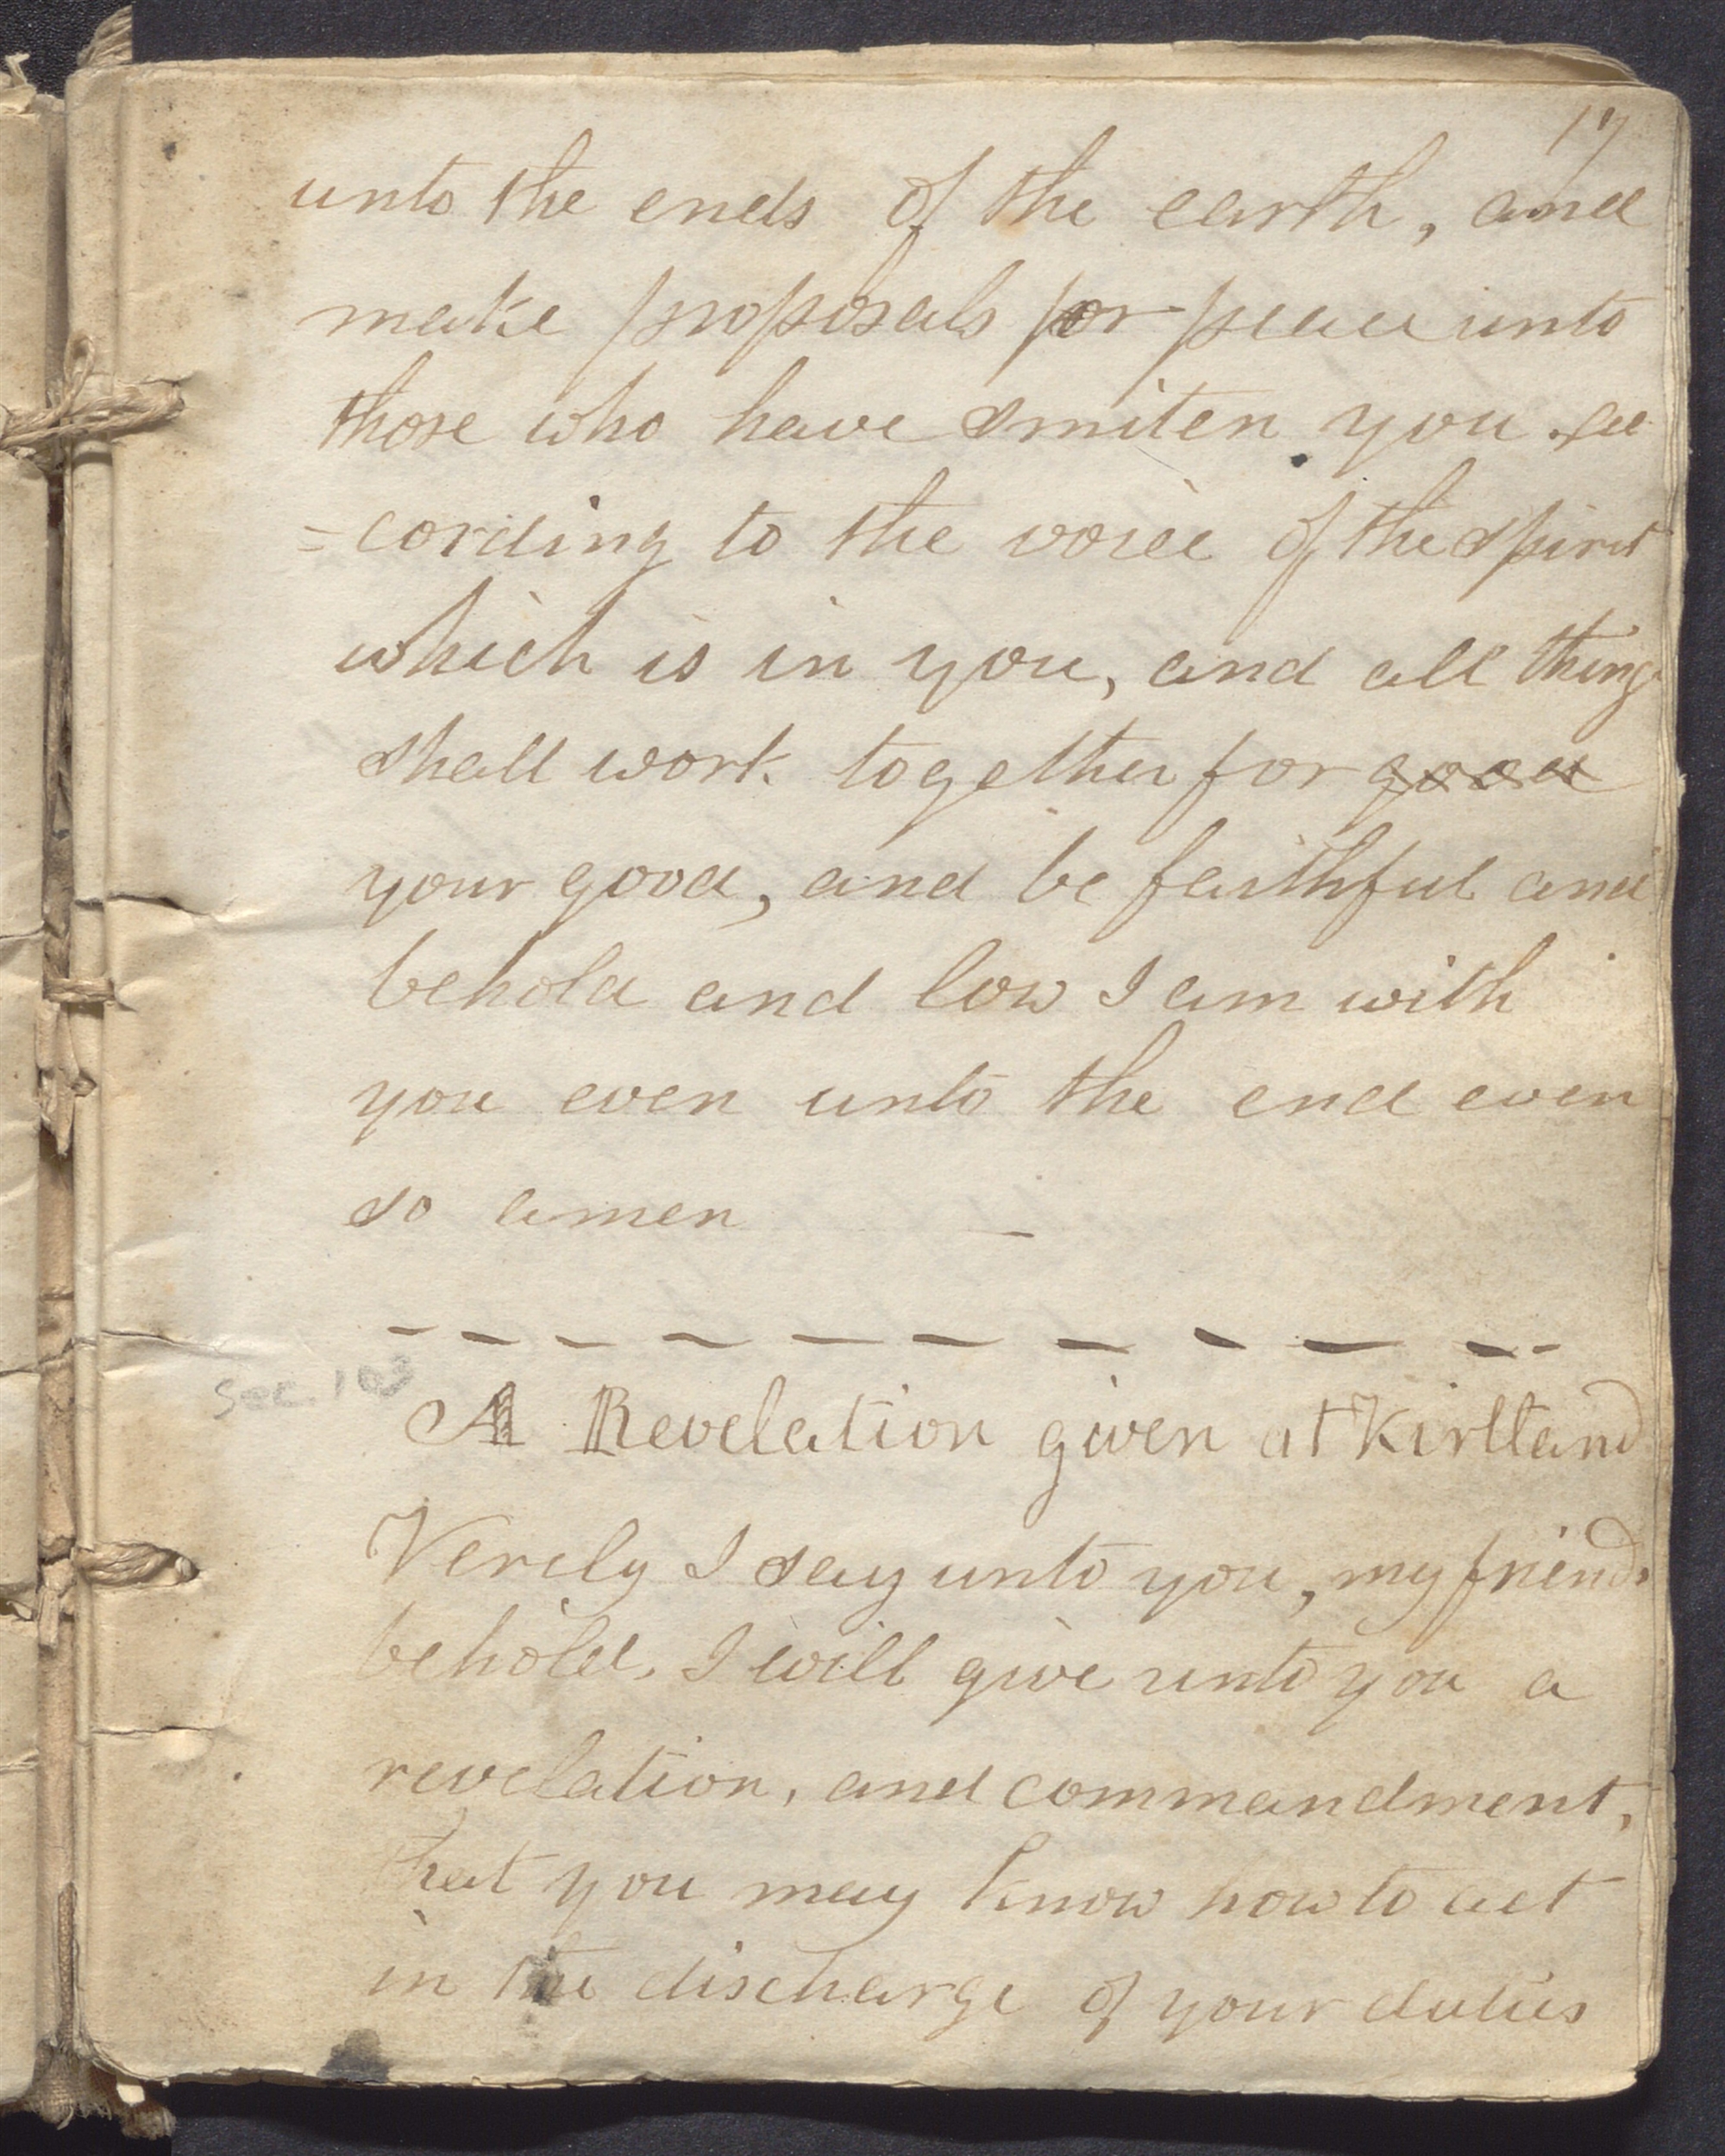 17
unto the ends of the earth, and
make proposals for peace unto
those who have smiten you. ac
=cording to the voice of the spirit
which is in you, and all things
shall work together for good
your good, and be faithful and
behold and low I am with
you even unto the end even
so amen —
Sec. 103
A Revelation given at Kirtland
Verily I say unto you, my friends
behold, I will give unto you a
revelation, and commandment,
that you may know how to act
in the discharge of your duties